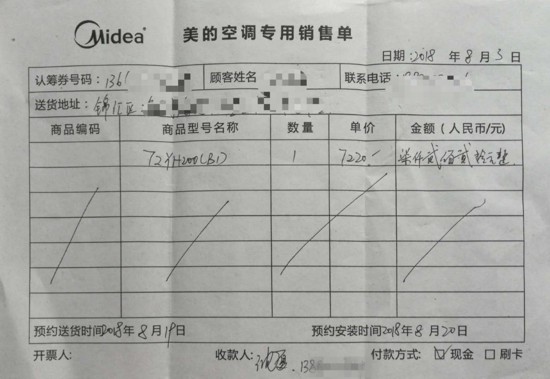 Midea 美的空调专用销售单
日期：2018年8月5日
认筹券号码：1361 顾客姓名 联系电话：
送货地址：锦江区
商品编码 商品型号名称 数量 单价 金额（人民币/元）
1 7220.- 柒仟贰佰贰拾元整
预约送货时间2018年8月19日 预约安装时间2018年8月20日
开票人： 收款人： 138 付款方式：☑现金 □刷卡